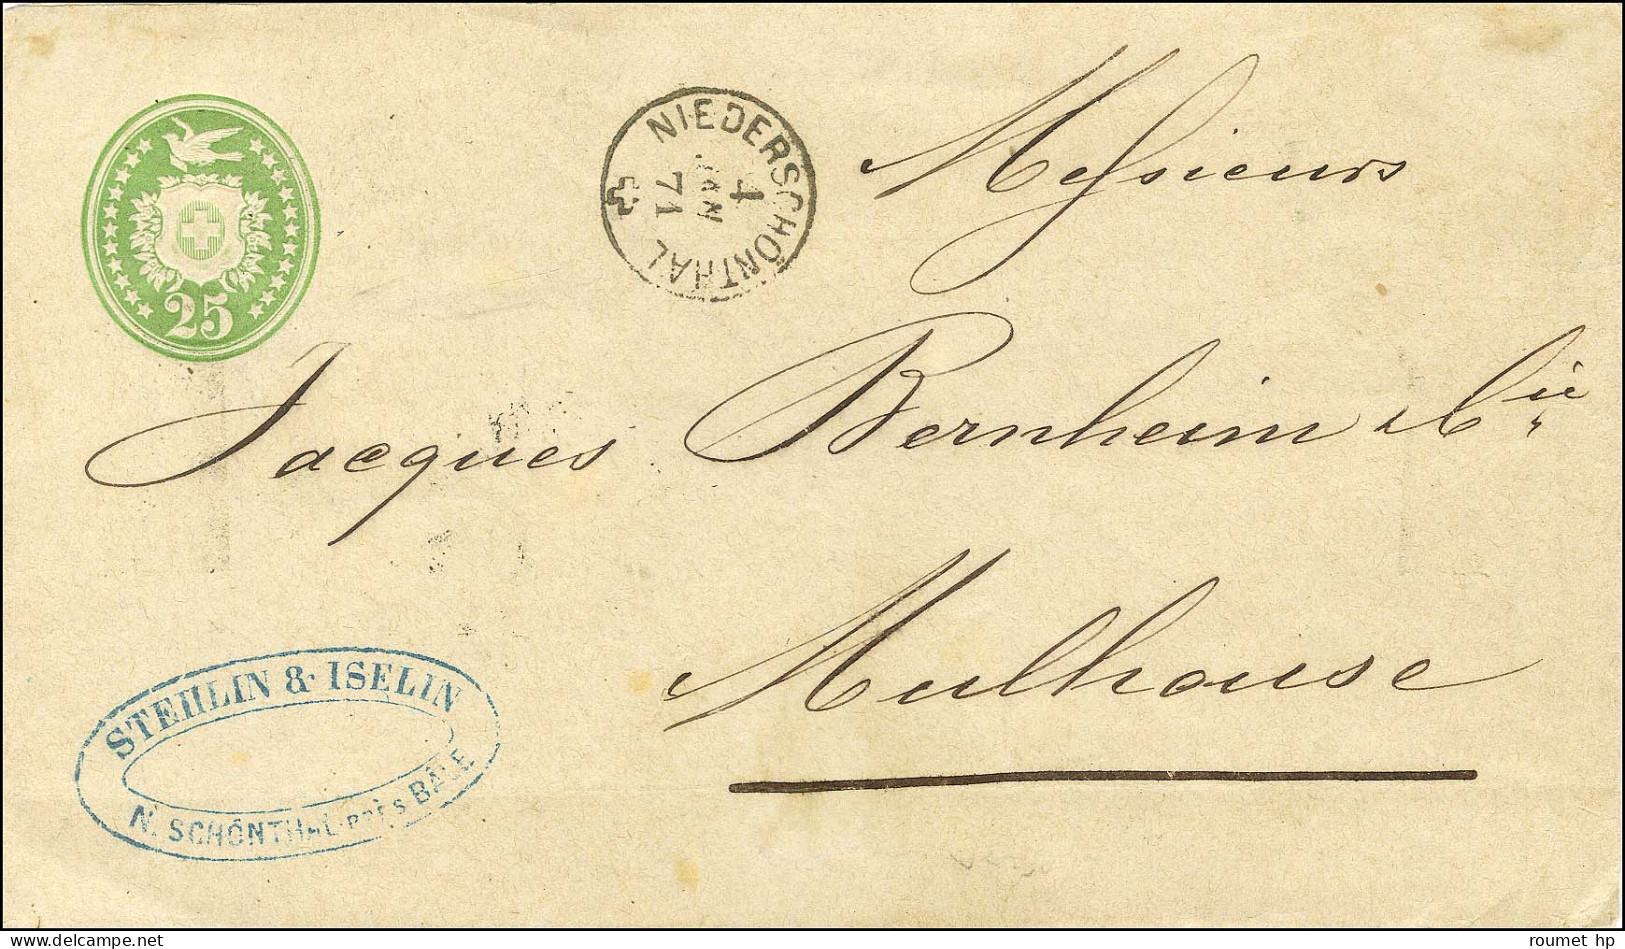 NIEDERSCHÖNTHAL
4
JAN
71
Messieurs
25
Jacques Bernheim & Cie
Mulhouse
STEHLIN & ISELIN
N. SCHÖNTHAL PRÈS BÂLE
roumet hp